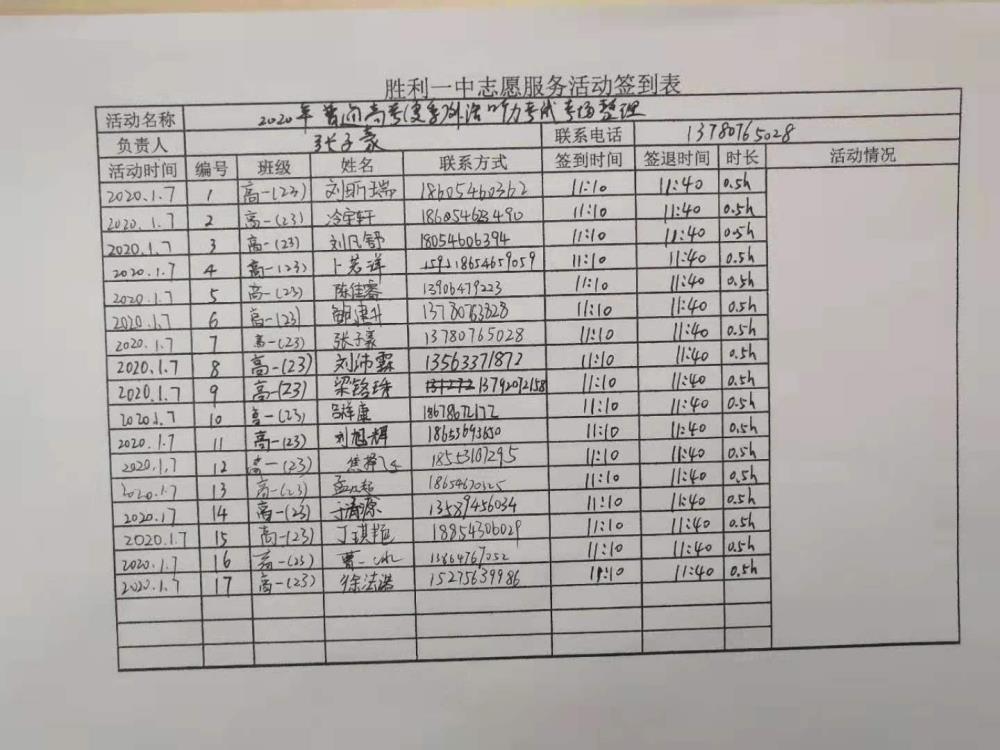 胜利一中志愿服务活动签到表
活动名称 2020年普通高考(夏季)外语听力考试考场整理
负责人 张子豪 联系电话 13780765028
活动时间 编号 班级 姓名 联系方式 签到时间 签退时间 时长 活动情况
2020.1.7 1 高一(23) 刘昕瑞 18605460362 11:10 11:40 0.5h
2020.1.7 2 高一(23) 冷宇轩 11:10 11:40 0.5h
2020.1.7 3 高一(23) 刘凡舒 18054606394 11:10 11:40 0.5h
2020.1.7 4 高一(23) 卜若洋 18654659059 11:10 11:40 0.5h
2020.1.7 5 高一(23) 陈佳睿 13906479223 11:10 11:40 0.5h
2020.1.7 6 高一(23) 鲍建升 13780763828 11:10 11:40 0.5h
2020.1.7 7 高一(23) 张子豪 13780765028 11:10 11:40 0.5h
2020.1.7 8 高一(23) 刘沛霖 13563371872 11:10 11:40 0.5h
2020.1.7 9 高一(23) 梁铭珠 13792072158 11:10 11:40 0.5h
2020.1.7 10 高一(23) 18678672172 11:10 11:40 0.5h
2020.1.7 11 高一(23) 刘旭辉 18653693650 11:10 11:40 0.5h
2020.1.7 12 高一(23) 18553107295 11:10 11:40 0.5h
2020.1.7 13 高一(23) 11:10 11:40 0.5h
2020.1.7 14 高一(23) 于清源 13589456034 11:10 11:40 0.5h
2020.1.7 15 高一(23) 丁琪艳 18854306029 11:10 11:40 0.5h
2020.1.7 16 高一(23) 13864767052 11:10 11:40 0.5h
2020.1.7 17 高一(23) 徐法诺 15275639986 11:10 11:40 0.5h